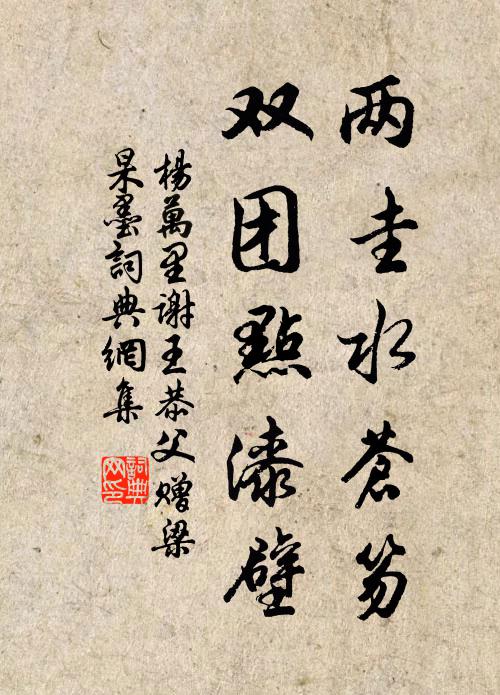 两圭水苍笏
双团點漆璧
楊萬里谢王恭父赠梁
杲墨詞典網集
詞典网印